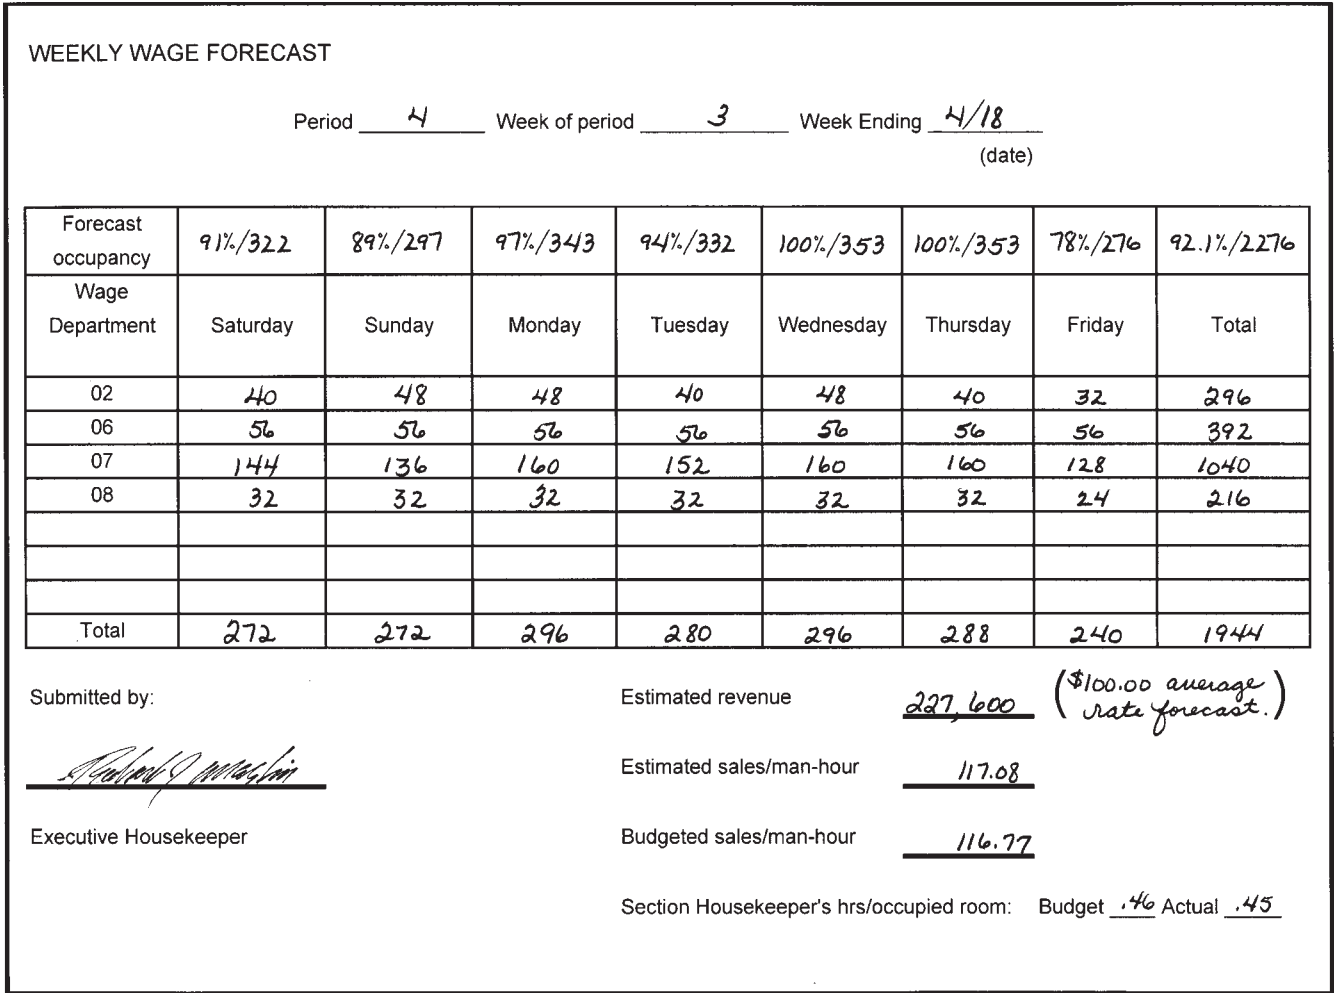 WEEKLY WAGE FORECAST
Period 4 Week of period 3 Week Ending 4/18
(date)
Forecast occupancy 91%/322 89%/297 97%/343 94%/332 100%/353 100%/353 78%/276 92.1%/2276
Wage Department Saturday Sunday Monday Tuesday Wednesday Thursday Friday Total
02 40 48 48 40 48 40 32 296
06 56 56 56 56 56 56 56 392
07 144 136 160 152 160 160 128 1040
08 32 32 32 32 32 32 24 216
Total 272 272 296 280 296 288 240 1944
Submitted by: Estimated revenue 227,600 ($100.00 average rate forecast.)
Estimated sales/man-hour 117.08
Executive Housekeeper Budgeted sales/man-hour 116.77
Section Housekeeper's hrs/occupied room: Budget .46 Actual .45